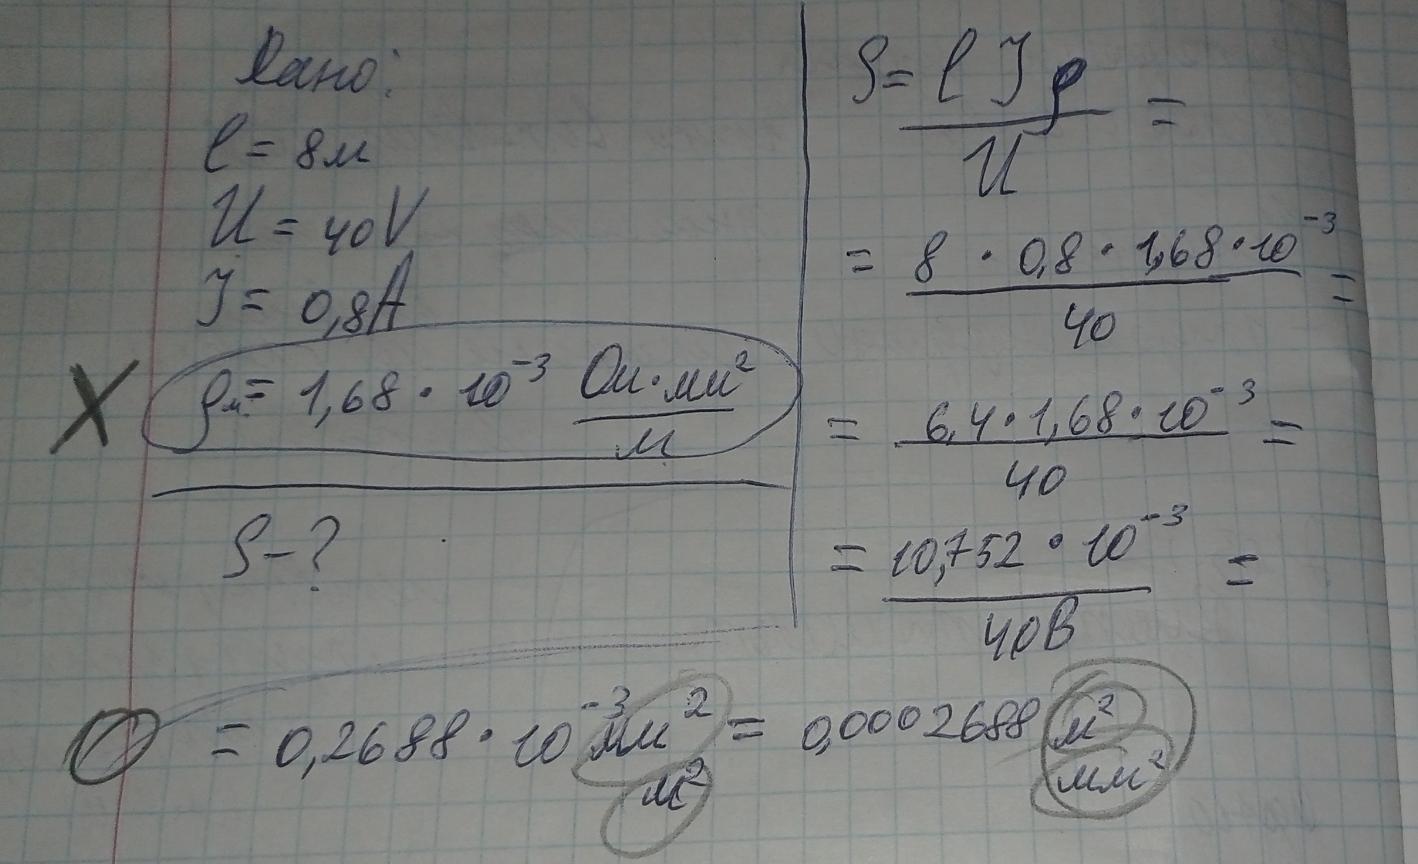 Дано:
l = 8м
U = 40V
I = 0,8A
X ρм = 1,68 · 10⁻³ Ом·мм²/м
S - ?
S = l I ρ / U =
= 8 · 0,8 · 1,68 · 10⁻³ / 40 =
= 6,4 · 1,68 · 10⁻³ / 40 =
= 10,752 · 10⁻³ / 40В =
= 0,2688 · 10⁻³ мм² / м² = 0,0002688 м² / мм²